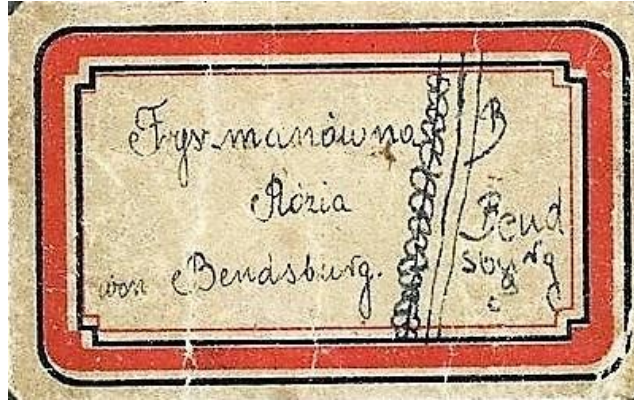 Frysmanówna
Rózia
von Bendsburg.
B
Bend
sburg